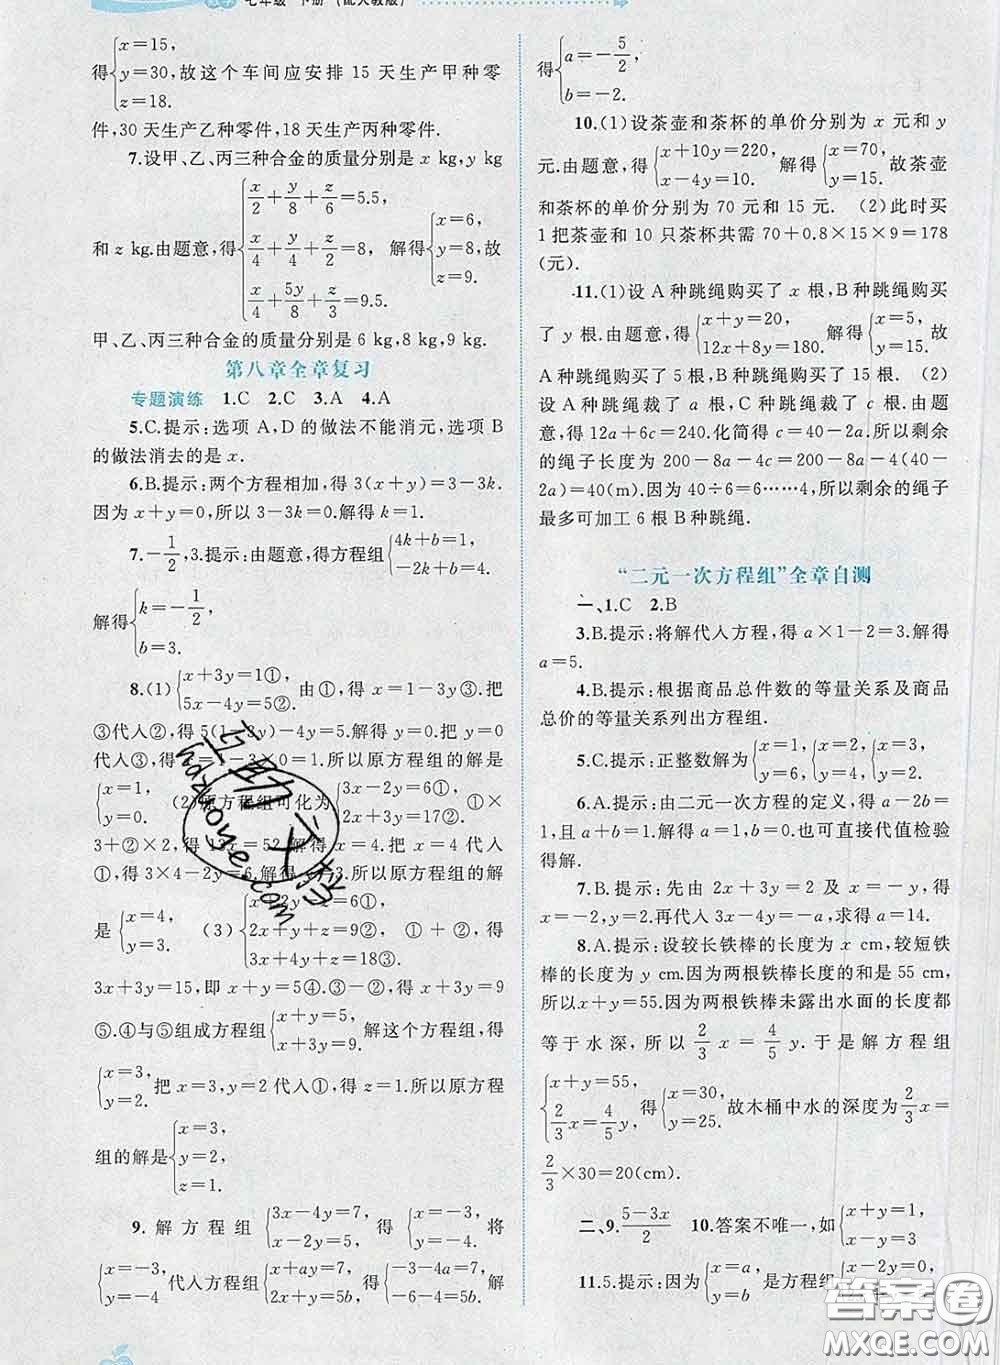 七年级 下册 (配人教版)
得{x=15, y=30, z=18. 故这个车间应安排 15 天生产甲种零
件,30 天生产乙种零件,18 天生产丙种零件.
7.设甲、乙、丙三种合金的质量分别是 x kg,y kg
和 z kg.由题意,得{x/2+y/8+z/6=5.5, x/4+y/4+z/2=8, x/4+5y/8+z/3=9.5. 解得{x=6, y=8, z=9. 故
甲、乙、丙三种合金的质量分别是 6 kg,8 kg,9 kg.
第八章全章复习
专题演练 1.C 2.C 3.A 4.A
5.C.提示:选项 A,D 的做法不能消元,选项 B
的做法消去的是 x.
6.B.提示:两个方程相加,得 3(x+y)=3-3k.
因为 x+y=0,所以 3-3k=0.解得 k=1.
7.-1/2,3.提示:由题意,得方程组{4k+b=1, -2k+b=4.
解得{k=-1/2, b=3.
8.(1){x+3y=1①, 5x-4y=5②. 由①,得 x=1-3y③.把
③代人②,得 5(1-3y)-4y=5.解得 y=0.把 y=0
代人③,得 x=1-3×0=1.所以原方程组的解是
{x=1, y=0. (2)原方程组可化为{3x-2y=6①, 2x+3y=17②.
3+②×2,得 13x=52.解得 x=4.把 x=4 代人
①,得 3×4-2y=6.解得 y=3.所以原方程组的解
是{x=4, y=3. (3){ 2x+y+z=9②, 3x+4y-z=16③. ①+②,得
3x+3y=15,即 x+y=5④.②+③,得 x+3y=9
⑤.④与⑤组成方程组{x+y=5, x+3y=9. 解这个方程组,得
{x=3, y=2. 把 x=3,y=2 代人①,得 z=1.所以原方程
组的解是{x=3, y=2, z=1.
9.解方程组{3x-4y=7, 得{x=-3, y=-4. 将
{x=-3, y=-4 代人方程组{ax+by=7, 2ax+y=5b, 得{-3-4a=7, -6-4=5b. 解
得{a=-5/2, b=-2.
10.(1)设茶壶和茶杯的单价分别为 x 元和 y
元.由题意,得{x+10y=220, x-4y=10. 解得{x=70, y=15. 故茶壶
和茶杯的单价分别为 70 元和 15 元. (2)此时买
1 把茶壶和 10 只茶杯共需 70+0.8×15×9=178
(元).
11.(1)设 A 种跳绳购买了 x 根,B 种跳绳购买
了 y 根.由题意,得{x+y=20, 12x+8y=180. 解得{x=5, y=15. 故
A 种跳绳购买了 5 根,B 种跳绳购买了 15 根. (2)
设 A 种跳绳裁了 a 根,B 种跳绳裁了 c 根.由题
意,得 12a+6c=240.化简得 c=40-2a.所以剩余
的绳子长度为 200-8a-4c=200-8a-4(40-
2a)=40(m).因为 40÷6=6……4,所以剩余的绳子
最多可加工 6 根 B 种跳绳.
“二元一次方程组”全章自测
一、1.C 2.B
3.B.提示:将解代人方程,得 a×1-2=3.解得
a=5.
4.B.提示:根据商品总件数的等量关系及商品
总价的等量关系列出方程组.
5.C.提示:正整数解为{x=1, y=6. {x=2, y=4. {x=3, y=2.
6.A.提示:由二元一次方程的定义,得 a-2b=
1,且 a+b=1.解得 a=1,b=0.也可直接代值检验
得解.
7.B.提示:先由 2x+3y=2 及 x=-y,得
x=-2,y=2.再代人 3x-4y=-a,求得 a=14.
8.A.提示:设较长铁棒的长度为 x cm,较短铁
棒的长度为 y cm.因为两根铁棒长度的和是 55 cm,
所以 x+y=55.因为两根铁棒未露出水面的长度都
等于水深,所以 2/3 x=4/5 y.于是解方程组
{x+y=55, 2/3 x=4/5 y. 得{x=30, y=25. 故木桶中水的深度为 2/3 x=
2/3×30=20(cm).
二、9. (5-3x)/2 10.答案不唯一,如{x+y=1, x-y=3
11.5.提示:因为{x=a, y=b 是方程组{x-2y=0,
答案圈
MXQE.COM